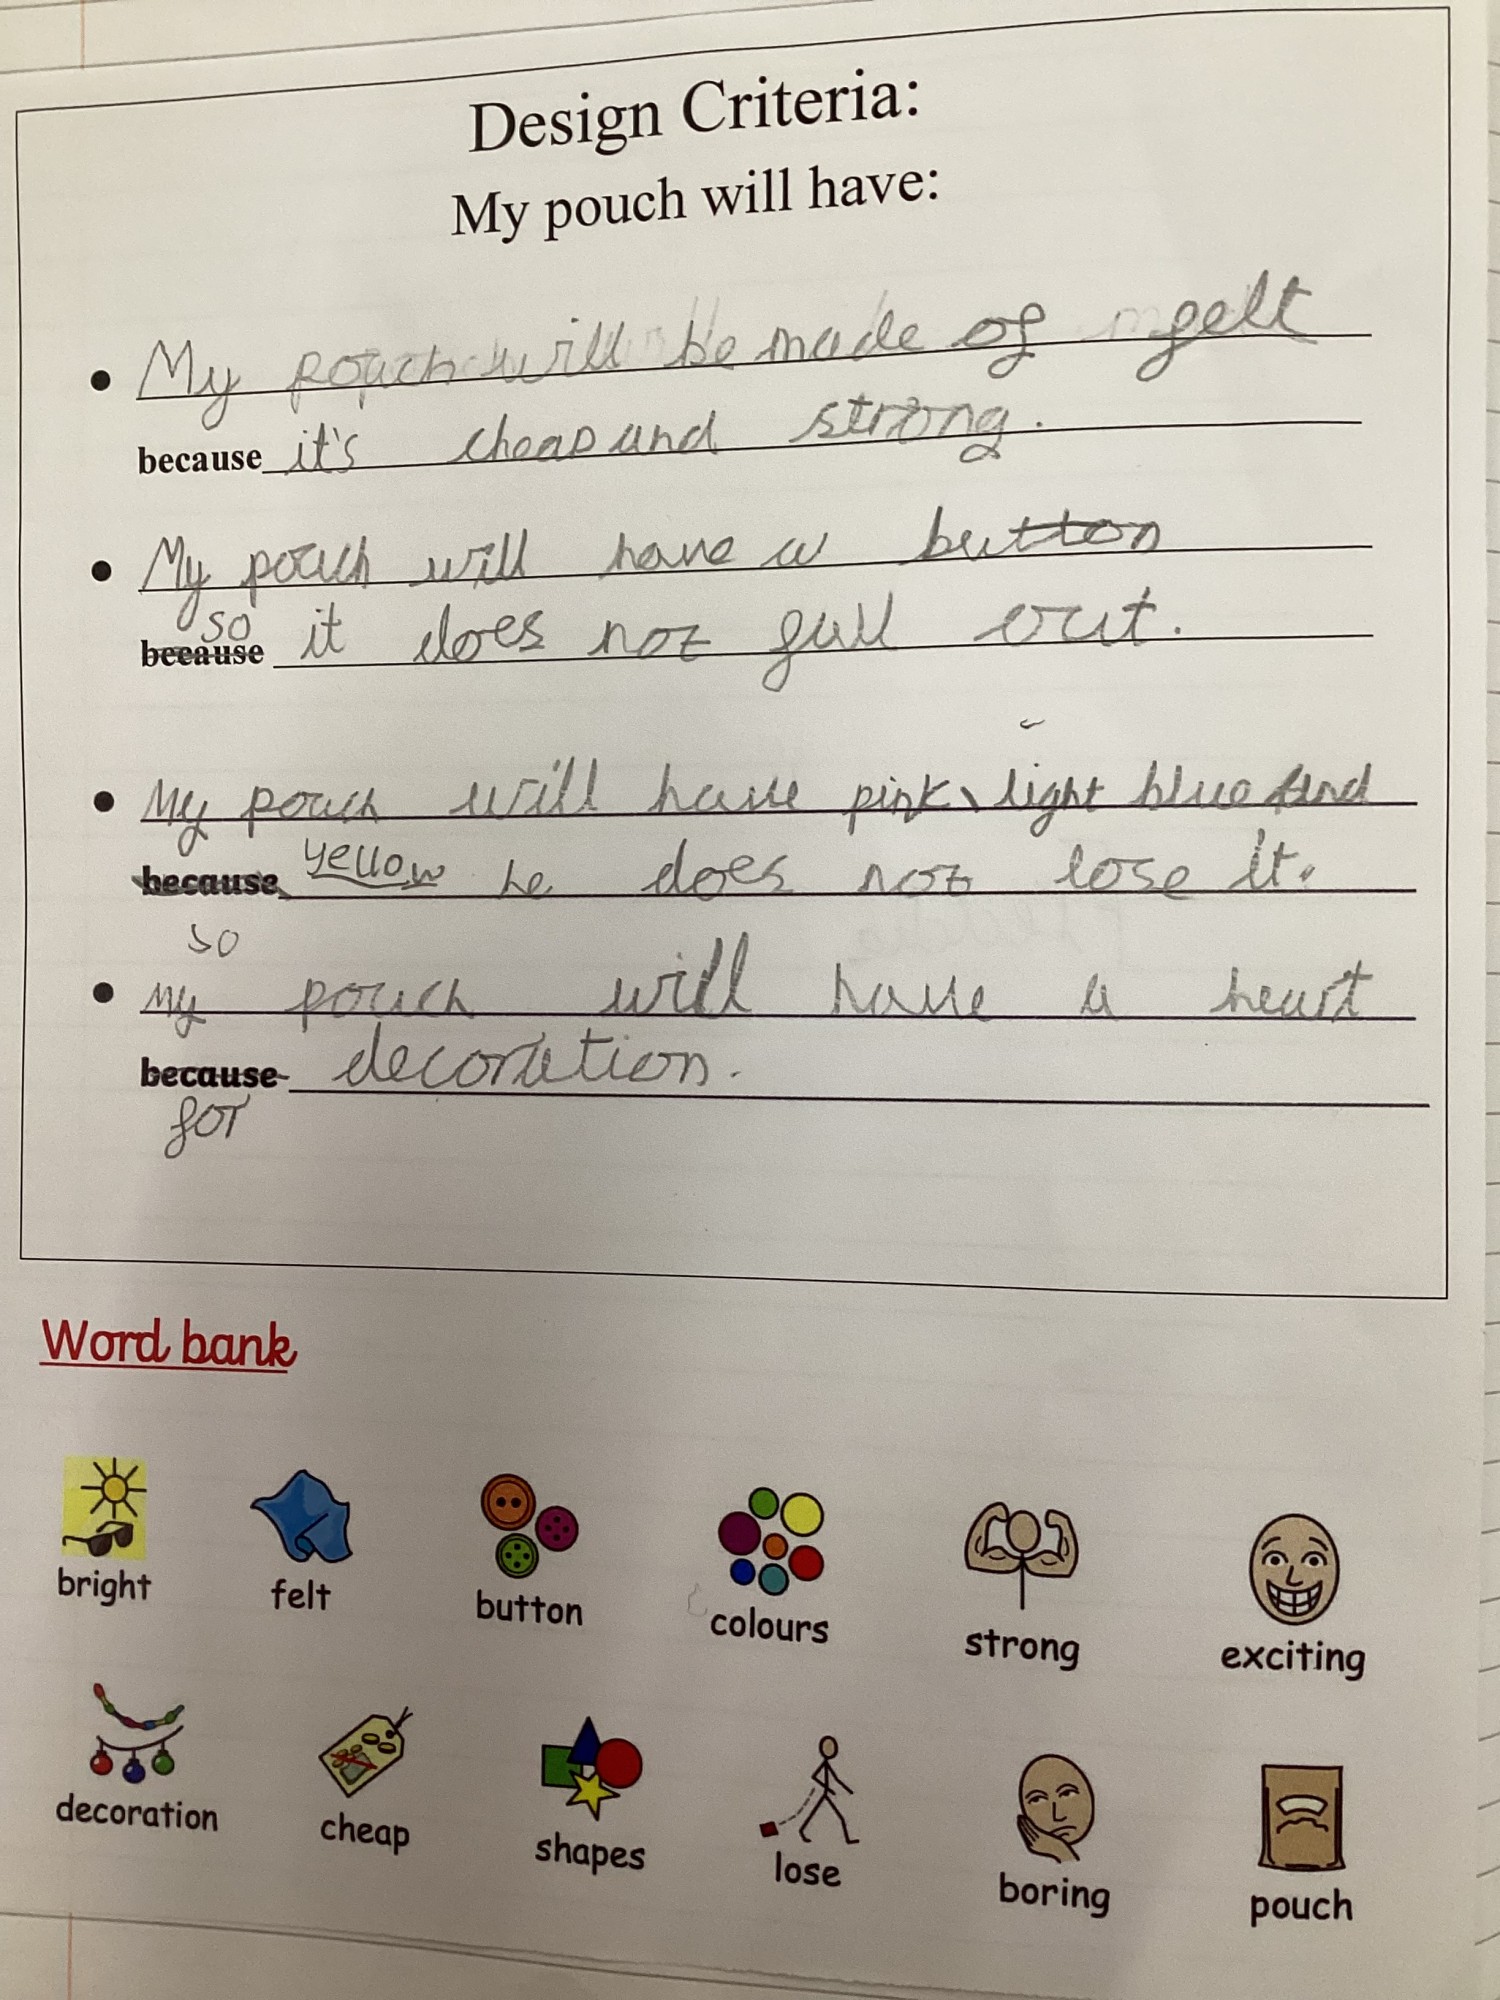 Design Criteria:
My pouch will have:
• My pouch will be made of felt
because it's cheap and strong.
• My pouch will have a button
so
because it does not fall out.
• My pouch will have pink, light blue and
because yellow he does not lose it.
so
• My pouch will have a heart
because decoration.
for
Word bank
bright felt button colours strong exciting
decoration cheap shapes lose boring pouch